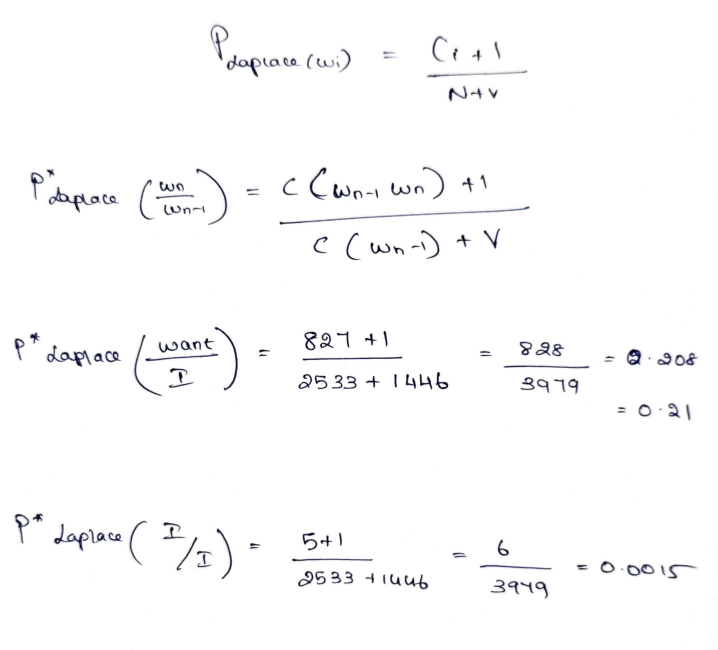 P Laplace (wi) = Ci + 1 / N + V
P* Laplace (wn / wn-1) = C (wn-1 wn) + 1 / C (wn-1) + V
P* Laplace (want / I) = 827 + 1 / 2533 + 1446 = 828 / 3979 = 0.208
= 0.21
P* Laplace (I / I) = 5 + 1 / 2533 + 1446 = 6 / 3979 = 0.0015